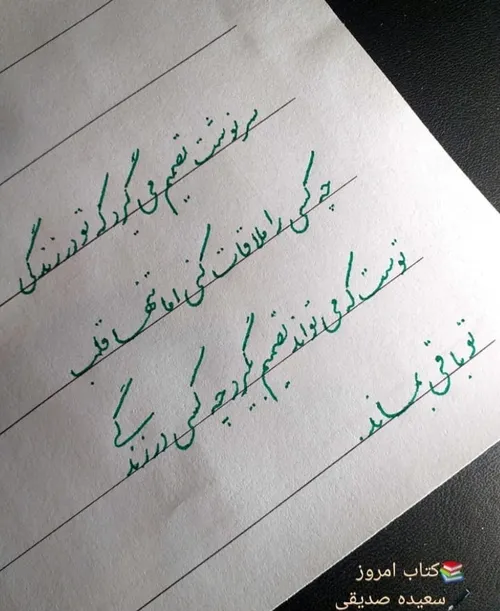 سرنوشت تصمیم می گیرد که تو در زندگی
چه کسی را ملاقات کنی اما تنها قلب
توست که می تواند تصمیم بگیرد چه کسی در زندگی
تو باقی بماند.
📚کتاب امروز
سعیده صدیقی